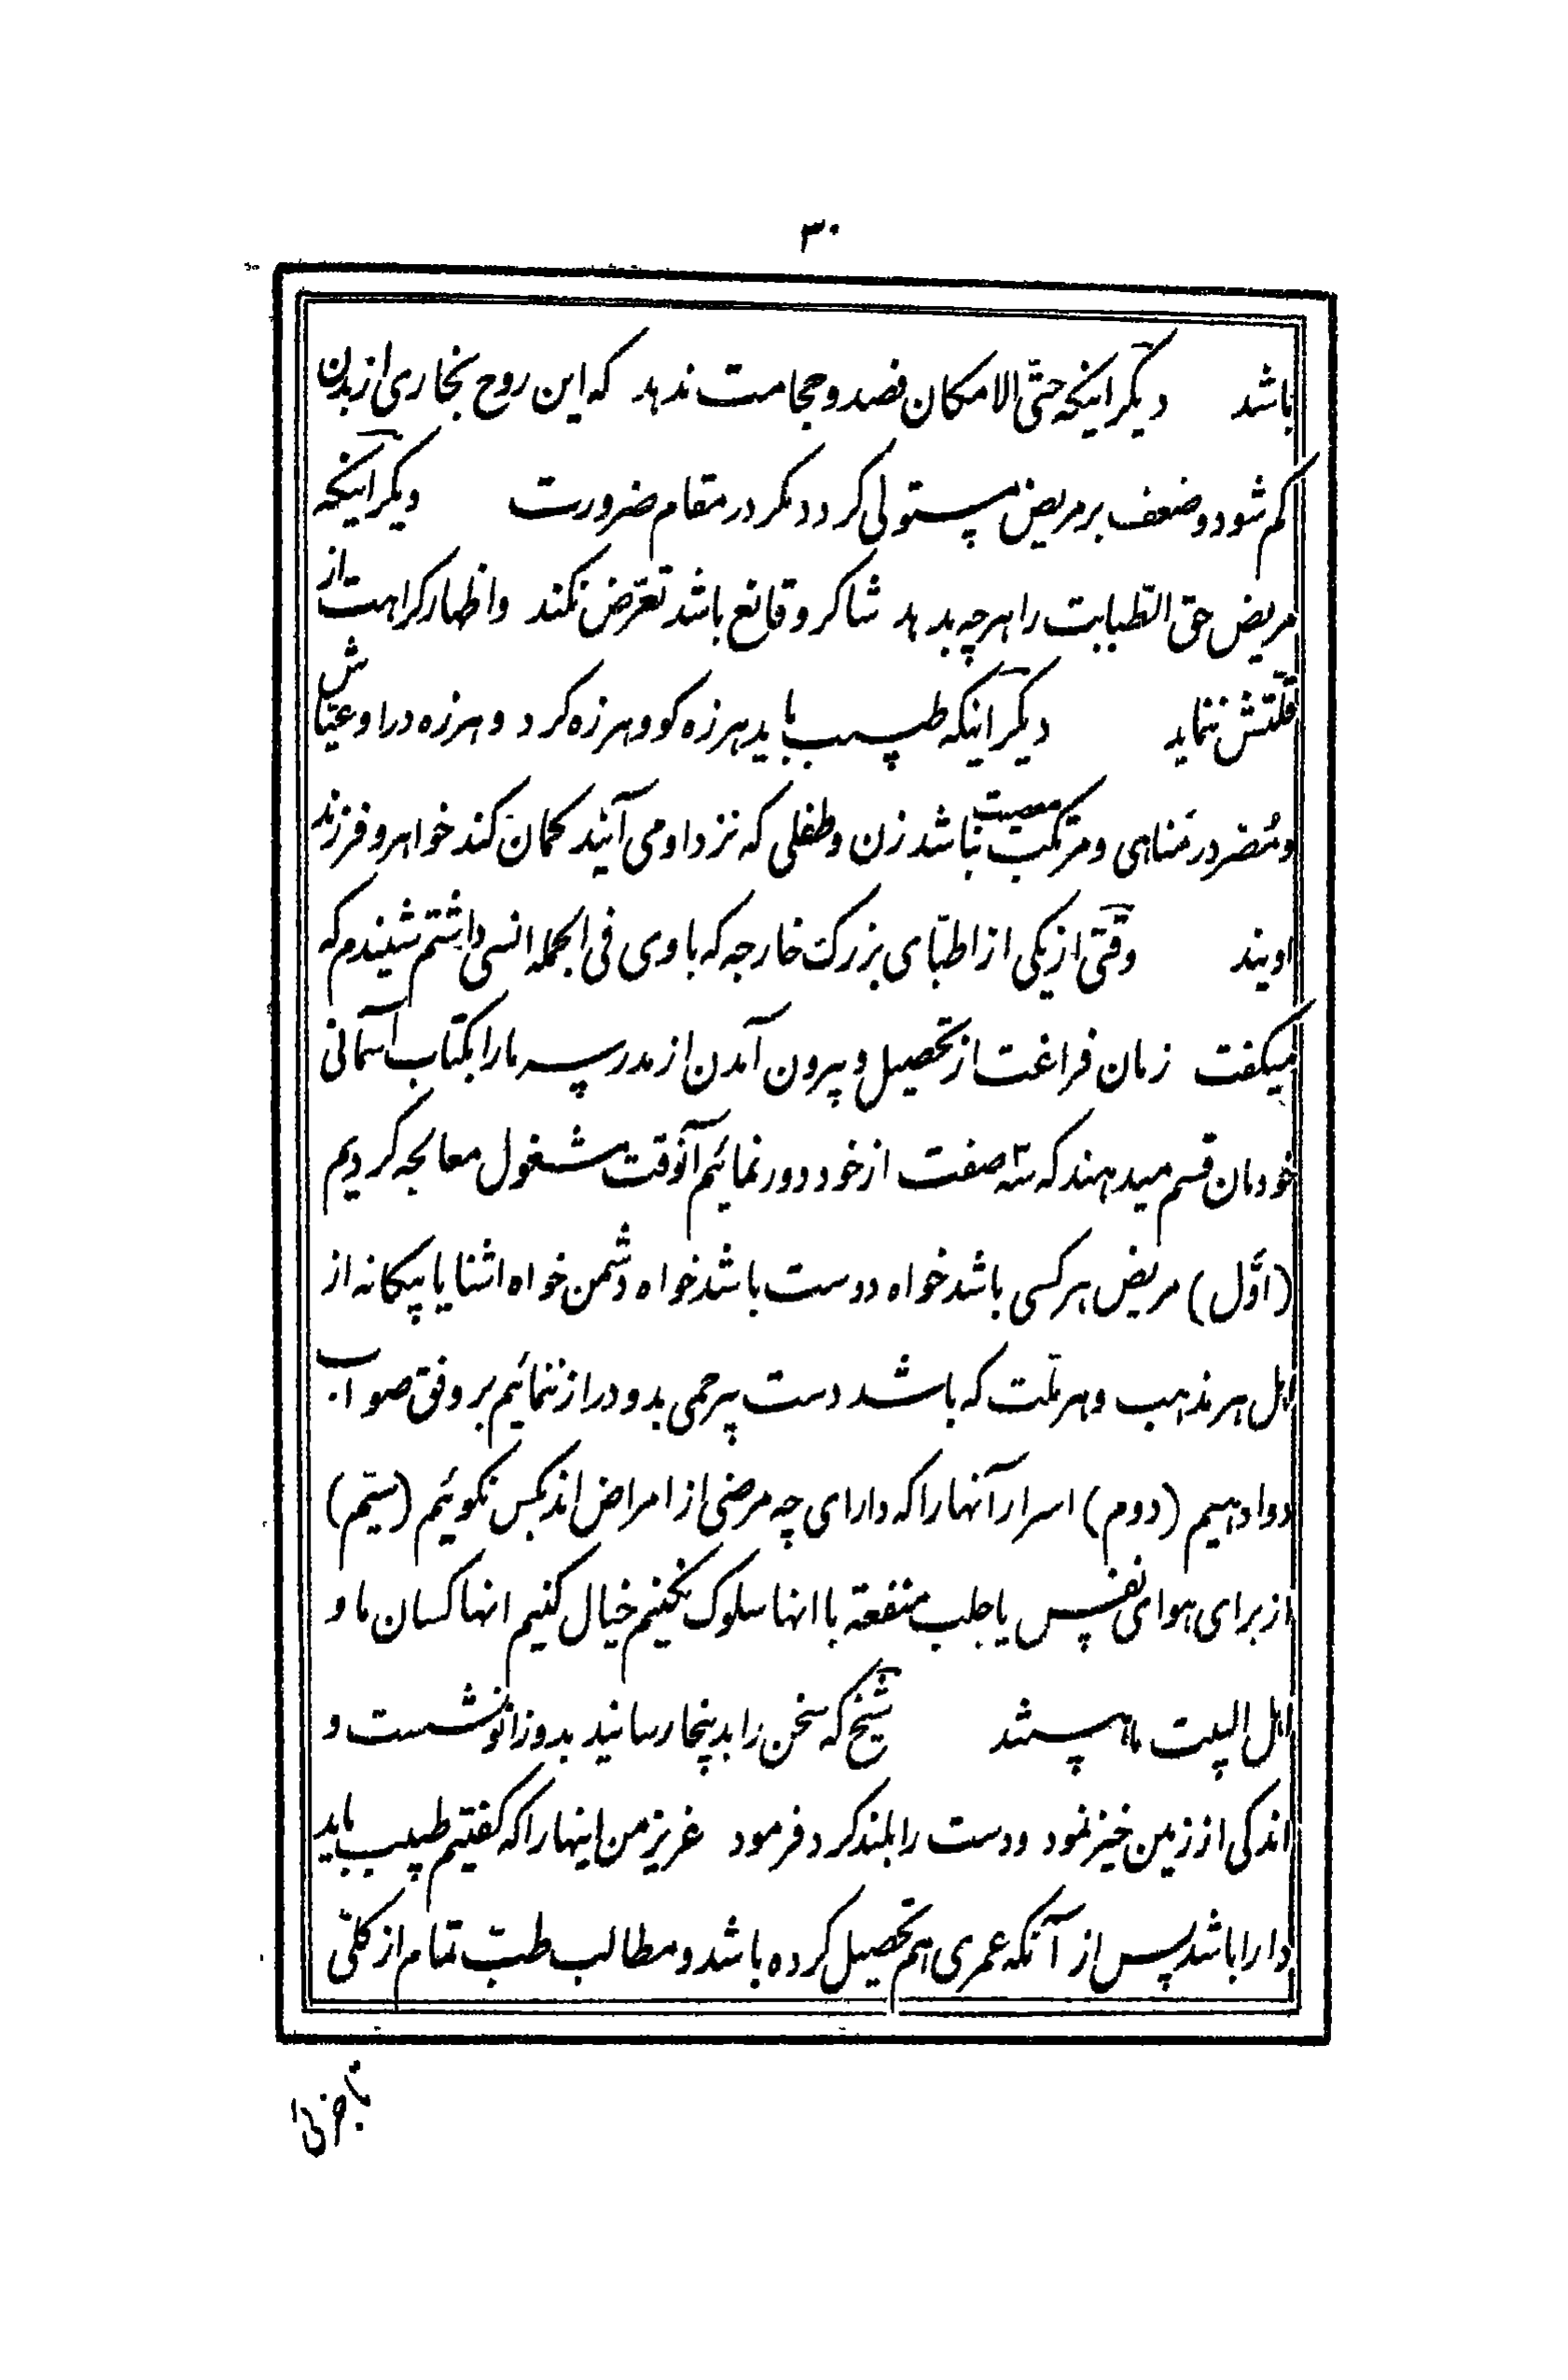 ۳۰
باشد دیکر اینکه حتّی الامکان فصد و حجامت ندهد که این روح بخاری از بدن
کم شود و ضعف بر مریض مستولی کردد مکر در مقام ضرورت دیکر اینکه
مریض حق الطبابت را هرچه بدهد شاکر و قانع باشد تعرّض نکند و اظهار کراهت از
قلّتش ننماید دیکر اینکه طبیب باید هرزه کو و هرزه کرد و هرزه درا و عیّاش
و مُضر در مَناهی و مرتکب معصیت نباشد زن و طفلی که نزد او می آیند کمان کند خواهر و فرزند
اویند وقتی از یکی از اطبّای بزرک خارجه که با وی فی الجمله انسی داشتم شنیدم که
میکفت زمان فراغت از تحصیل و بیرون آمدن از مدرسه ما را بکتاب آسمانی
خودمان قسم میدهند که سّه صفت از خود دور نمائیم آنوقت مشغول معالجه کردیم
(اوّل) مریض هر کسی باشد خواه دوست باشد خواه دشمن خواه اشنا یا بیکانه از
اهل هر مذهب و هر ملّت که باشد دست بیرحمی بدو دراز ننمائیم بر وفق صواب
دوا دهیم (دوم) اسرار آنها را که دارای چه مرضی از امراض اند بکس نکوئیم (سیّم)
از برای هوای نفس یا جلب منفعة با انها سلوک نکنیم خیال کنیم انها کسان ما و
اهل البیت ما هستند شیخ که سخن را بدینجا رسانید بدو زانو نشست و
اندکی از زمین خیز نمود و دست را بلند کرد فرمود عزیز من اینها را که کفتیم طبیب باید
دارا باشد پس از آنکه عمری هم تحصیل کرده باشد و مطالب طبّ تمام از کلّی